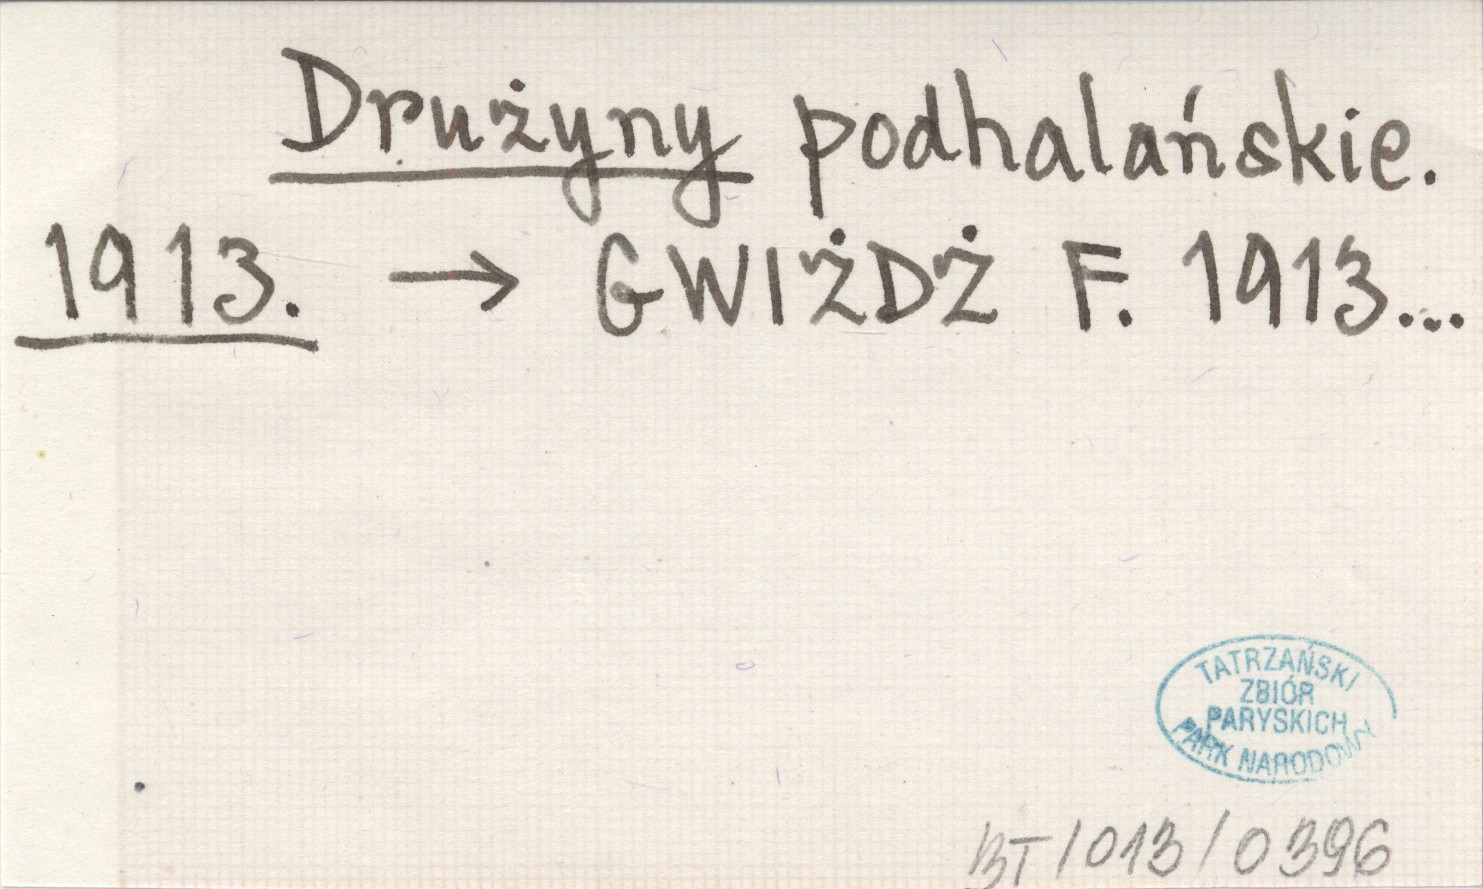 Drużyny podhalańskie.
1913. → GWIŻDŻ F. 1913...
TATRZAŃSKI
ZBIÓR
PARYSKICH
PARK NARODOWY
BT/013/0396